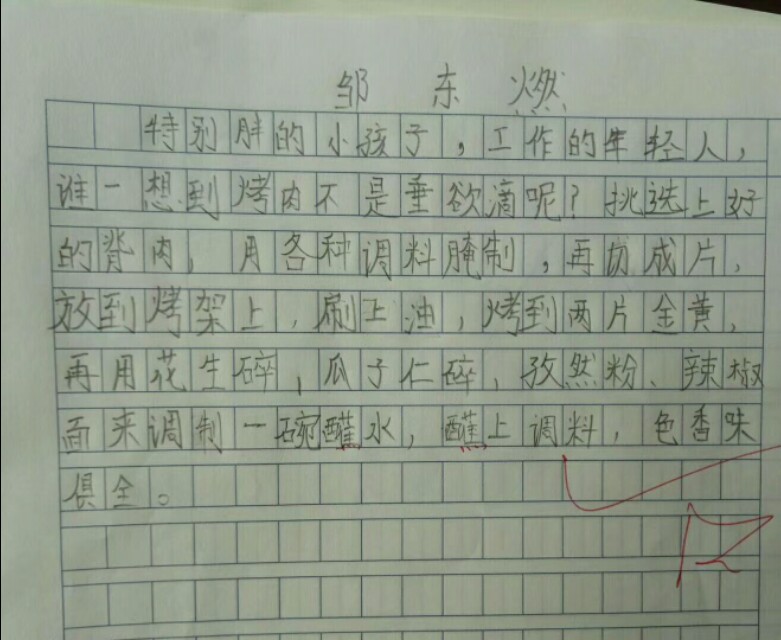 邹东燃
特别胖的小孩子，工作的年轻人，
谁一想到烤肉不是垂欲滴呢？挑选上好
的脊肉，用各种调料腌制，再切成片，
放到烤架上，刷上油，烤到两片金黄，
再用花生碎，瓜子仁碎，孜然粉、辣椒
面来调制一碗蘸水，蘸上调料，色香味
俱全。